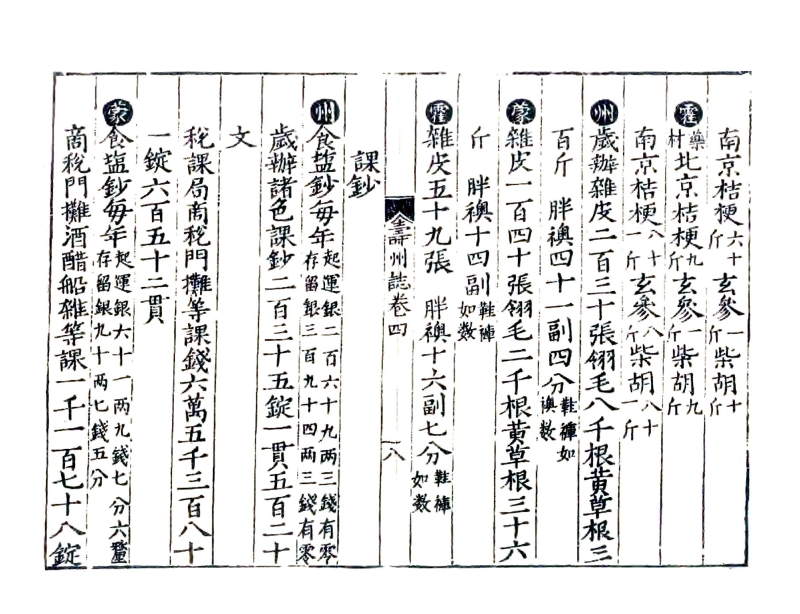 南京桔梗六十斤玄參一斤柴胡十斤
霍藥材北京桔梗九斤玄參一斤柴胡九斤
南京桔梗八十一斤玄參八斤柴胡八十一斤
州歲辦雜皮二百三十張翎毛八千根黃草根三
百斤 胖襖四十一副四分鞋褲如襖數
蒙雜皮一百四十張翎毛二千根黃草根三十六
斤 胖襖十四副鞋褲如数
霍雜皮五十九張 胖襖十六副七分鞋褲如数
壽州誌卷四 八
課鈔
州食塩鈔每年起運銀二百六十九两三錢有零存留銀三百九十四两三錢有零
歲辦諸色課鈔二百三十五錠一貫五百二十
文
稅課局商稅門攤等課錢六萬五千三百八十
一錠六百五十二貫
蒙食塩鈔每年起運銀六十一两九錢七分六釐存留銀九十两七錢五分
商稅門攤酒醋船雜等課一千一百七十八錠